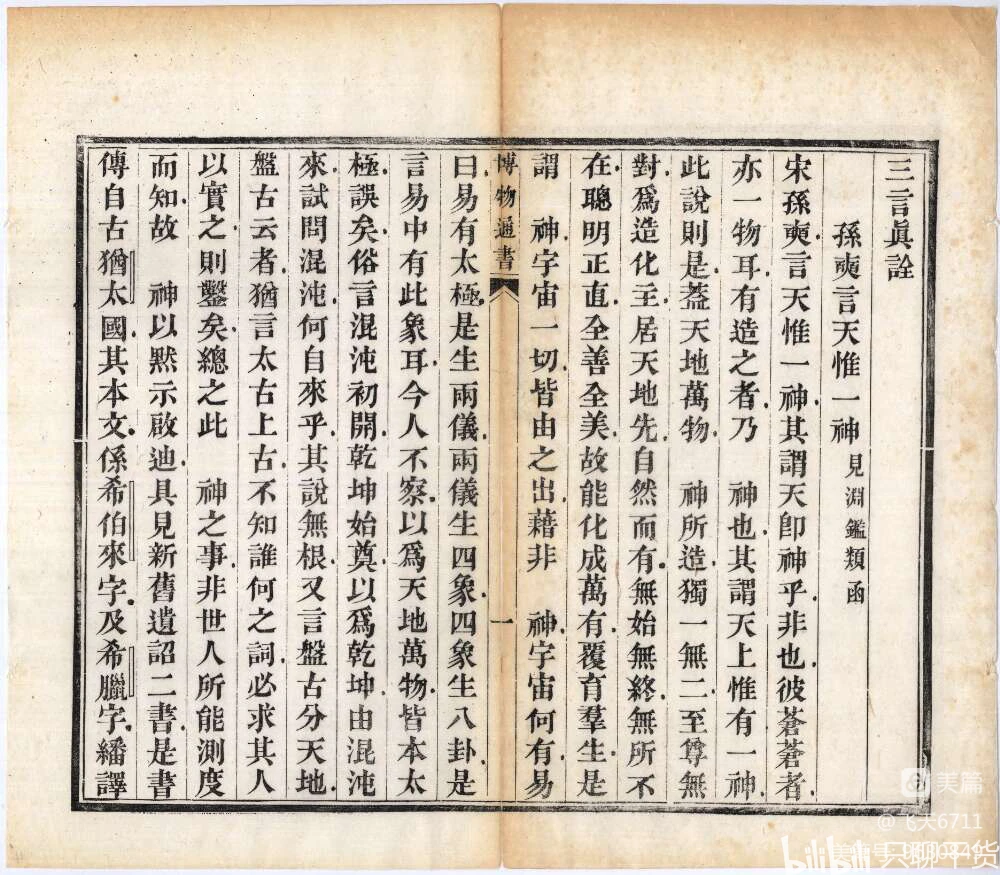 三言眞詮
孫奭言天惟一神 見淵鑑類函
宋孫奭言天惟一神其謂天卽神乎非也彼蒼蒼者
亦一物耳有造之者乃 神也其謂天上惟有一神
此說則是蓋天地萬物 神所造獨一無二至尊無
對爲造化主居天地先自然而有無始無終無所不
在聰明正直全善全美故能化成萬有覆育羣生是
謂 神宇宙一切皆由之出藉非 神宇宙何有易
博物通書 一
曰易有太極是生兩儀兩儀生四象四象生八卦是
言易中有此象耳今人不察以爲天地萬物皆本太
極誤矣俗言混沌初開乾坤始奠以爲乾坤由混沌
來試問混沌何自來乎其說無根又言盤古分天地
盤古云者猶言太古上古不知誰何之詞必求其人
以實之則鑿矣總之此 神之事非世人所能測度
而知故 神以默示啟迪具見新舊遺詔二書是書
傳自古猶太國其本文係希伯來字及希臘字繙譯
美篇
@飞天6711
bilibili 只聊干货